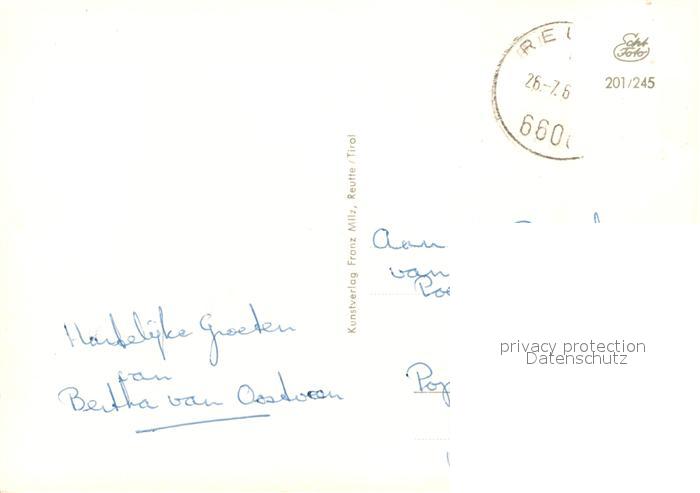 26.-7.6
660
Echt
Foto
201/245
Kunstverlag Franz Milz, Reutte/Tirol
Aan
van
Hartelijke Groeten
van
Bertha van Oostveen
privacy protection
Datenschutz